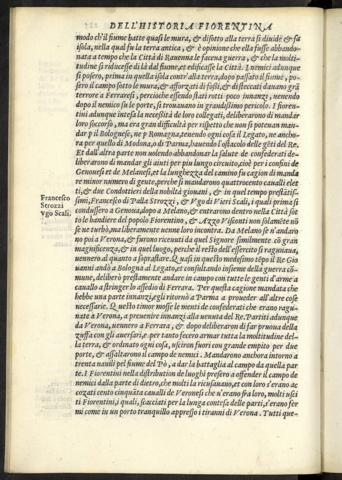 DELL'HISTORIA FIORENTINA
modo ch'il fiume batte quasi le mura, & disotto alla terra si diuide & fa
isola, nella qual fu la terra antica, & è opinione che ella fusse abbando-
nata a tempo che la Città di Rauenna le facena guerra, & che la molti-
tudine si riducesse di là dal fiume, et edificasse la Città. I nemici adunque
si posero, prima in quella isola contr'alla terra, dopo passato il fiume, po-
sero il campo sotto le mura, & afforzati di fossi, & disteccati dauano grã
terrore a Ferraresi, percioche essendo stati rotti poco innanzi, uenendo
dopo il nemico su le porte, si trouauano in grandissimo pericolo. I fioren-
tini adunque intesa la necessità de loro collegati, deliberarono di mandar
loro soccorso, ma era gran difficultà per rispetto che non si poteuan man-
dar p il Bolognese, ne p Romagna, tenendo ogni cosa il Legato, ne ancho-
ra per quello di Modona, o di Parma, hauendo l'ostacolo delle gẽti del Re.
Et dall'altra parte non uolendo abbandonar la salute de confederati de-
liberarono di mandar gli aiuti per piu lungo circuito, cioè per i confini de
Genouesi et de Melanesi, et la lunghezza del camino fu cagion di manda
re minor numero di gente, perche si mandarono quattrocento caualli elet
ti, & due Condottieri della nobiltà giouani, & in quel tempo prestātiss-
imi, Francesco di Palla Strozzi, & Vgo di Vieri Scali, i quali prima si
Francesco
Strozzi
Vgo Scali.
condussero a Genoua, dopo a Melano, & entrarono dentro nella Città sot
to le bandiere del popolo Fiorentino, & Azzo Visconti non solamẽte nõ
se ne turbò, ma liberamente uenne loro incontra. Da Melano se n'andaro
no poi a Verona, & furono riceuuti da quel Signore similmente cõ gran
magnificenza, & in quel luogo, perche il resto dell'essercito si ragunaua,
uennero al quanto a soprastare. Quasi in questo medesimo tẽpo il Re Gio
uanni andò a Bologna al Legato, et consultando insieme della guerra cõ-
mune, deliberò prestamente andare in campo con tutte le genti d'arme a
cauallo a stringer lo assedio di Ferrara. Per questa cagione mandata che
hebbe una parte innanzi, egli ritornò a Parma a proueder all'altre cose
necessarie. Questo timor mosse le menti de confederati che erano ragu-
nate a Verona, a preuenire innanzi alla uenuta del Re. Partiti adunque
da Verona, uennero a Ferrara, & dopo deliberaron di far pruoua della
zuffa con gli auersari, e per tanto fecero armar tutta la moltitudine del-
la terra, & ordinato ogni cosa, uscirono fuori con grande empito per due
porte, & assaltarono il campo de nemici. Mandarono anchora intorno a
trenta nauili pel fiume del Pò, a dar la battaglia al campo da quella par-
te. I Fiorentini nella distribution de luoghi presero a offender il campo de
nemici dalla parte di dietro, che molti la ricusauano, et con loro s'erano ac
cozati cento cinquãta caualli de Veronesi che n'erano fra loro, molti usci
ti Fiorentini, i quali, scacciati per la lunga contesa delle parti, s'erano fer
mi come in un porto tranquillo appresso i tiranni di Verona. Tutti que-